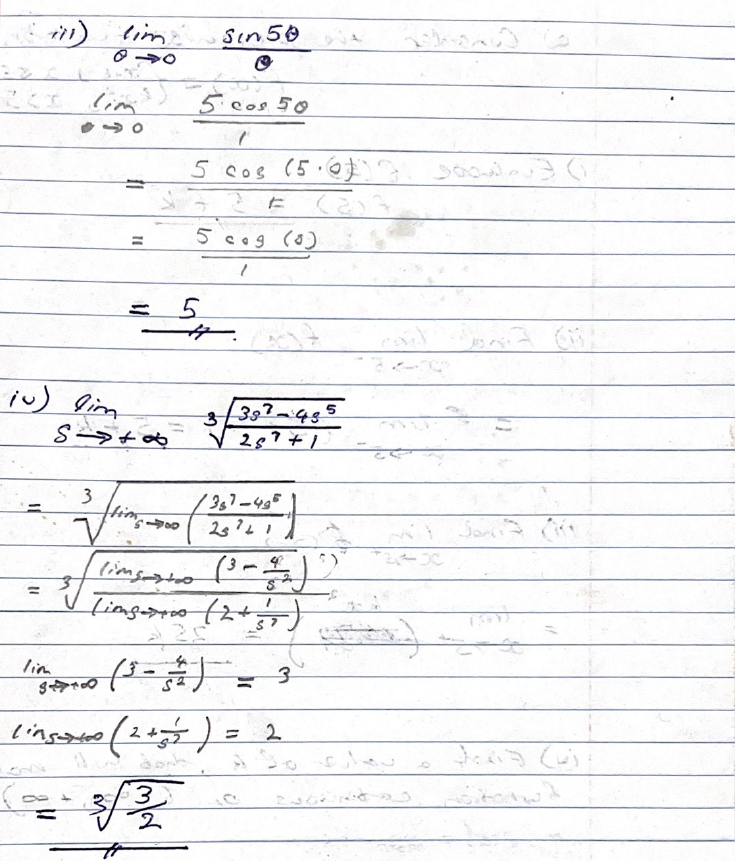 iii) lim θ→0 sin5θ / θ
lim θ→0 5·cos 5θ / 1
= 5 cos (5·0) / 1
= 5 cos (0) / 1
= 5
iv) lim s→+∞ ∛((3s⁷ − 4s⁵) / (2s⁷ + 1))
= ∛(lim s→∞ ((3s⁷ − 4s⁵) / (2s⁷ + 1)))
= ∛(lim s→+∞ (3 − 4/s²) / lim s→+∞ (2 + 1/s⁷))
lim s→+∞ (3 − 4/s²) = 3
lim s→+∞ (2 + 1/s⁷) = 2
= ∛(3/2)